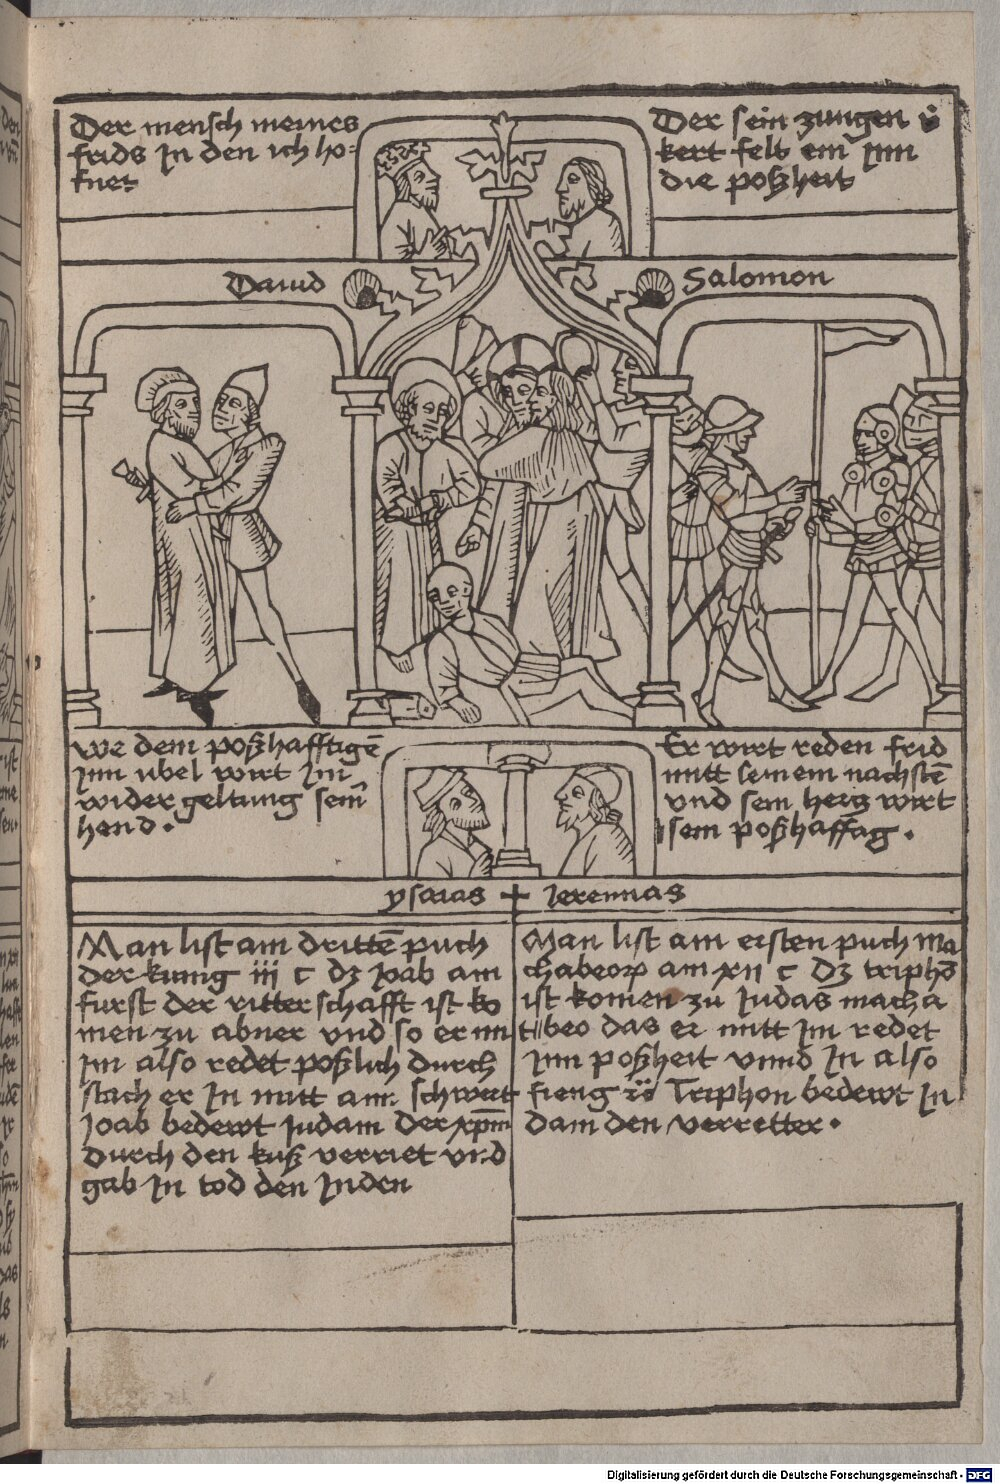 Der mensch meines
frids in den ich ho-
fnet
Der sein zungen v̈
kert felt ein Inn
die poßheit
Dauid
Salomon
we dem poßhafftigē
Inn ubel wirt Im
wider geltung seinr̄
hend.
Er wirt reden frid
mitt seinem nachstē
vnd sein hertz wirt
sein poßhafftig.
ysaias + Ieremias
Man list am drittē puch
der kunig iii c dz Joab am
furst der ritterschafft ist ko
men zu abner vnd so er mi
Im also redet poßlich durch
stach er In mitt am schwert
Joab bedewt Judam der xpm̄
durch den kuß verriet vnd
gab In tod den Juden
Man list am ersten puch Ma
chabeorꝝ am xii c Dz triphō
ist komen zu Judas macha
beo das er mitt Im redet
Inn poßheit vnnd In also
fieng Triphon bedewt In
dam den verretter.
Digitalisierung gefördert durch die Deutsche Forschungsgemeinschaft - DFG